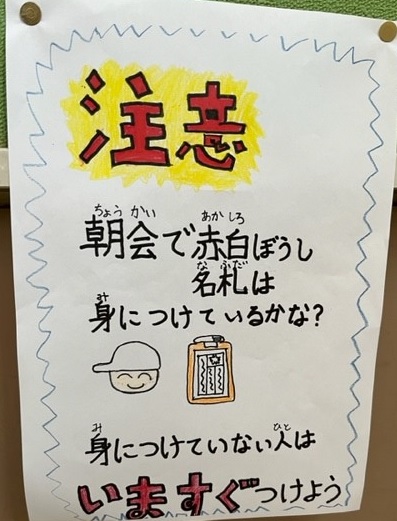 注意
ちょう かい あか しろ
朝会で赤白ぼうし
な ふだ
名札は
み
身につけているかな?
み ひと
身につけていない人は
いますぐつけよう